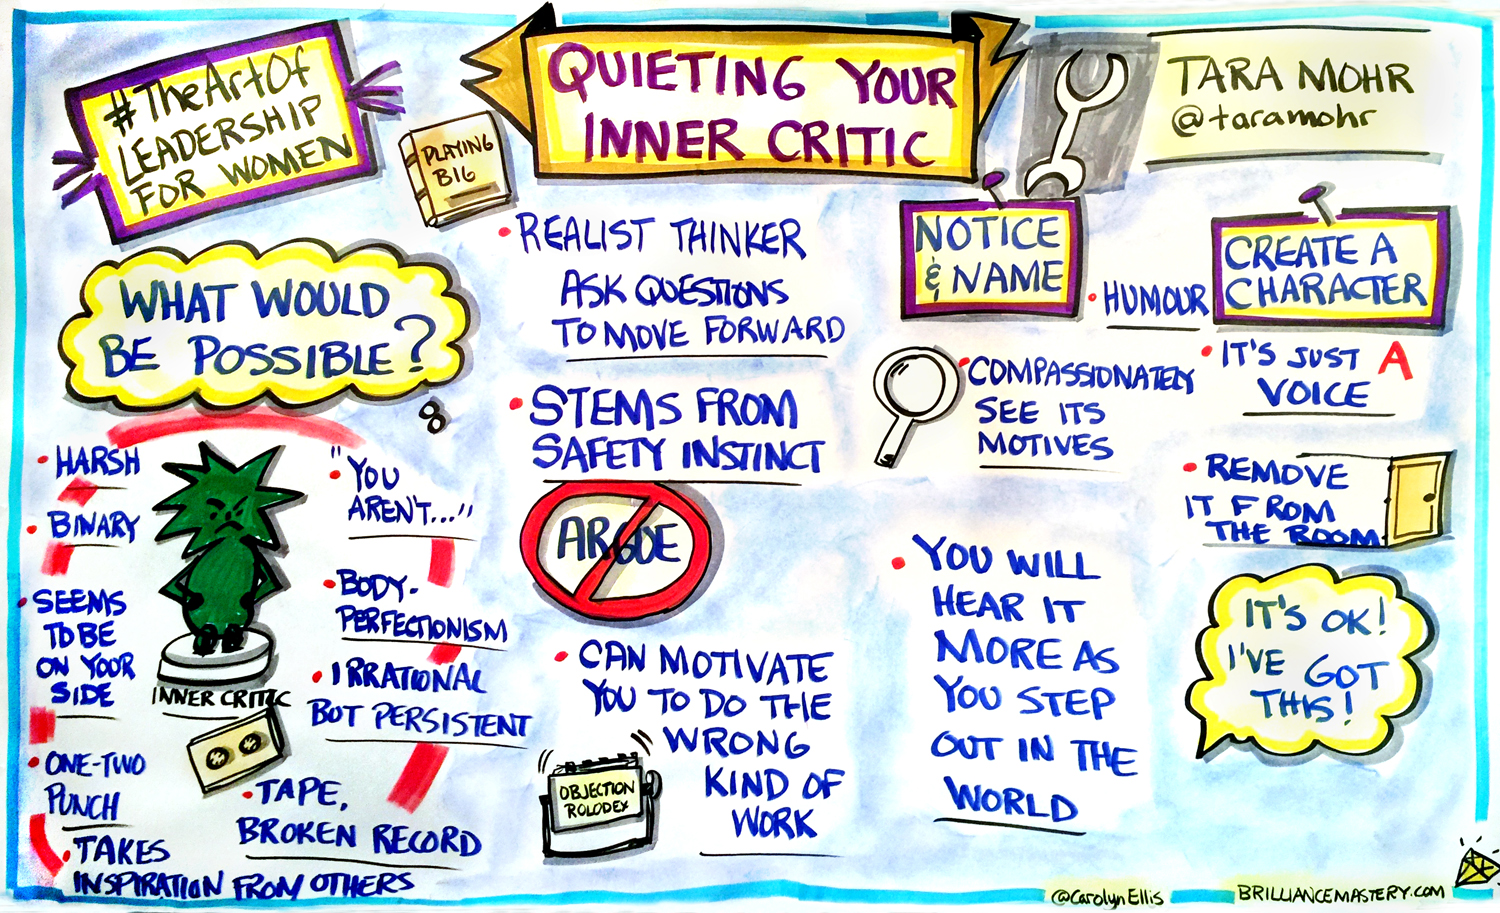 #TheArtOf
LEADERSHIP
FOR WOMEN
PLAYING
BIG
QUIETING YOUR
INNER CRITIC
TARA MOHR
@taramohr
WHAT WOULD
BE POSSIBLE?
• HARSH
• BINARY
• SEEMS
TO BE
ON YOUR
SIDE
• ONE-TWO
PUNCH
• TAKES
INSPIRATION FROM OTHERS
INNER CRITIC
• "YOU
AREN'T..."
• BODY-
PERFECTIONISM
• IRRATIONAL
BUT PERSISTENT
• TAPE,
BROKEN RECORD
• REALIST THINKER
ASK QUESTIONS
TO MOVE FORWARD
• STEMS FROM
SAFETY INSTINCT
ARGUE
• CAN MOTIVATE
YOU TO DO THE
WRONG
KIND OF
WORK
OBJECTION
ROLODEX
NOTICE
& NAME
• HUMOUR
• COMPASSIONATELY
SEE ITS
MOTIVES
• YOU WILL
HEAR IT
MORE AS
YOU STEP
OUT IN THE
WORLD
CREATE A
CHARACTER
• IT'S JUST A
VOICE
• REMOVE
IT FROM
THE ROOM
IT'S OK!
I'VE GOT
THIS!
@CarolynEllis
BRILLIANCEMASTERY.COM